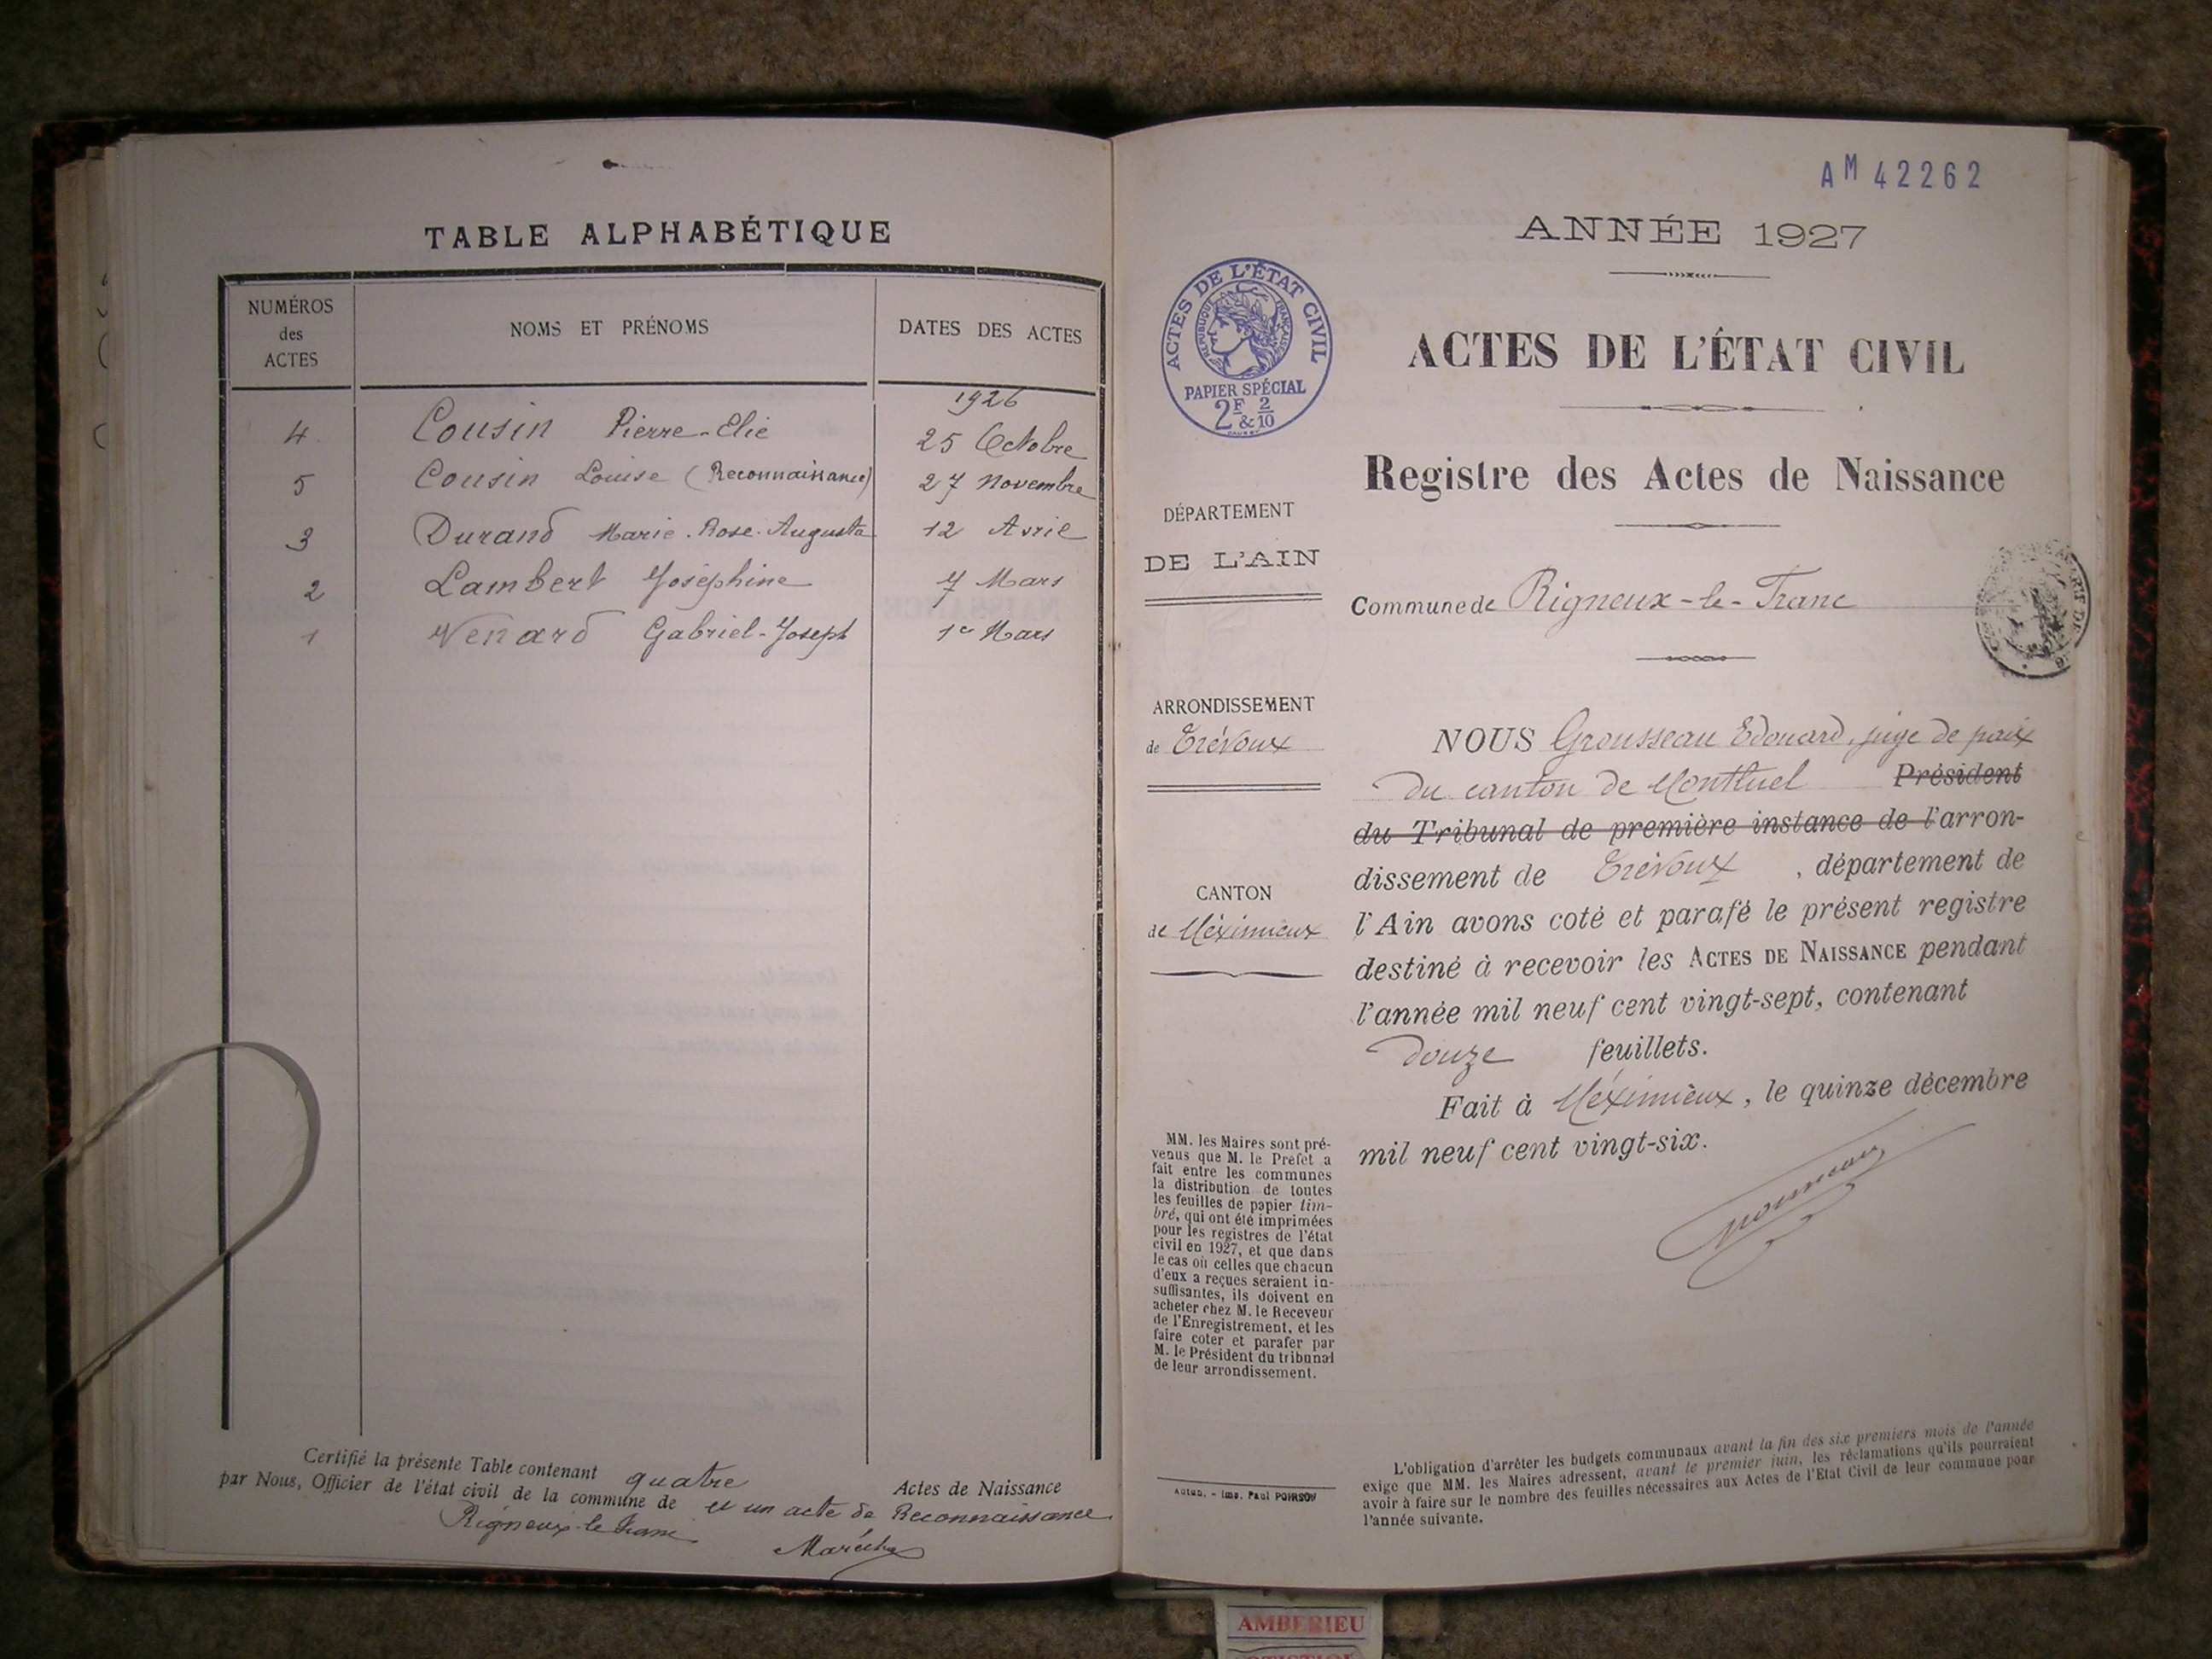 TABLE ALPHABÉTIQUE
NUMÉROS
des
ACTES
NOMS ET PRÉNOMS
DATES DES ACTES
1926
4 Cousin Pierre-Elie 25 Octobre
5 Cousin Louise (Reconnaissance) 27 Novembre
3 Durand Marie-Rose-Augusta 12 Avril
2 Lambert Joséphine 7 Mars
1 Venard Gabriel-Joseph 1er Mars
Certifié la présente Table contenant quatre Actes de Naissance
par Nous, Officier de l'état civil de la commune de et un acte de Reconnaissance
Rigneux-le-Franc
AM 42262
ANNÉE 1927
ACTES DE L'ÉTAT CIVIL
RÉPUBLIQUE FRANÇAISE
PAPIER SPÉCIAL
2F & 2/10
ACTES DE L'ÉTAT CIVIL
Registre des Actes de Naissance
DÉPARTEMENT
DE L'AIN
Commune de Rigneux-le-Franc
ARRONDISSEMENT
de Trévoux
CANTON
de Méximieux
NOUS Grousseau Edouard, juge de paix
du canton de Montluel Président
du Tribunal de première instance de l'arron-
dissement de Trévoux, département de
l'Ain avons coté et parafé le présent registre
destiné à recevoir les ACTES DE NAISSANCE pendant
l'année mil neuf cent vingt-sept, contenant
douze feuillets.
Fait à Méximieux, le quinze décembre
mil neuf cent vingt-six.
MM. les Maires sont pré-
venus que M. le Préfet a
fait entre les communes
la distribution de toutes
les feuilles de papier tim-
bré, qui ont été imprimées
pour les registres de l'état
civil en 1927, et que dans
le cas où celles que chacun
d'eux a reçues seraient in-
suffisantes, ils doivent en
acheter chez M. le Receveur
de l'Enregistrement, et les
faire coter et parafer par
M. le Président du tribunal
de leur arrondissement.
Autun. - Imp. Paul POIRSON
L'obligation d'arrêter les budgets communaux avant la fin des six premiers mois de l'année
exige que MM. les Maires adressent, avant le premier juin, les réclamations qu'ils pourraient
avoir à faire sur le nombre des feuilles nécessaires aux Actes de l'Etat Civil de leur commune pour
l'année suivante.
AMBERIEU